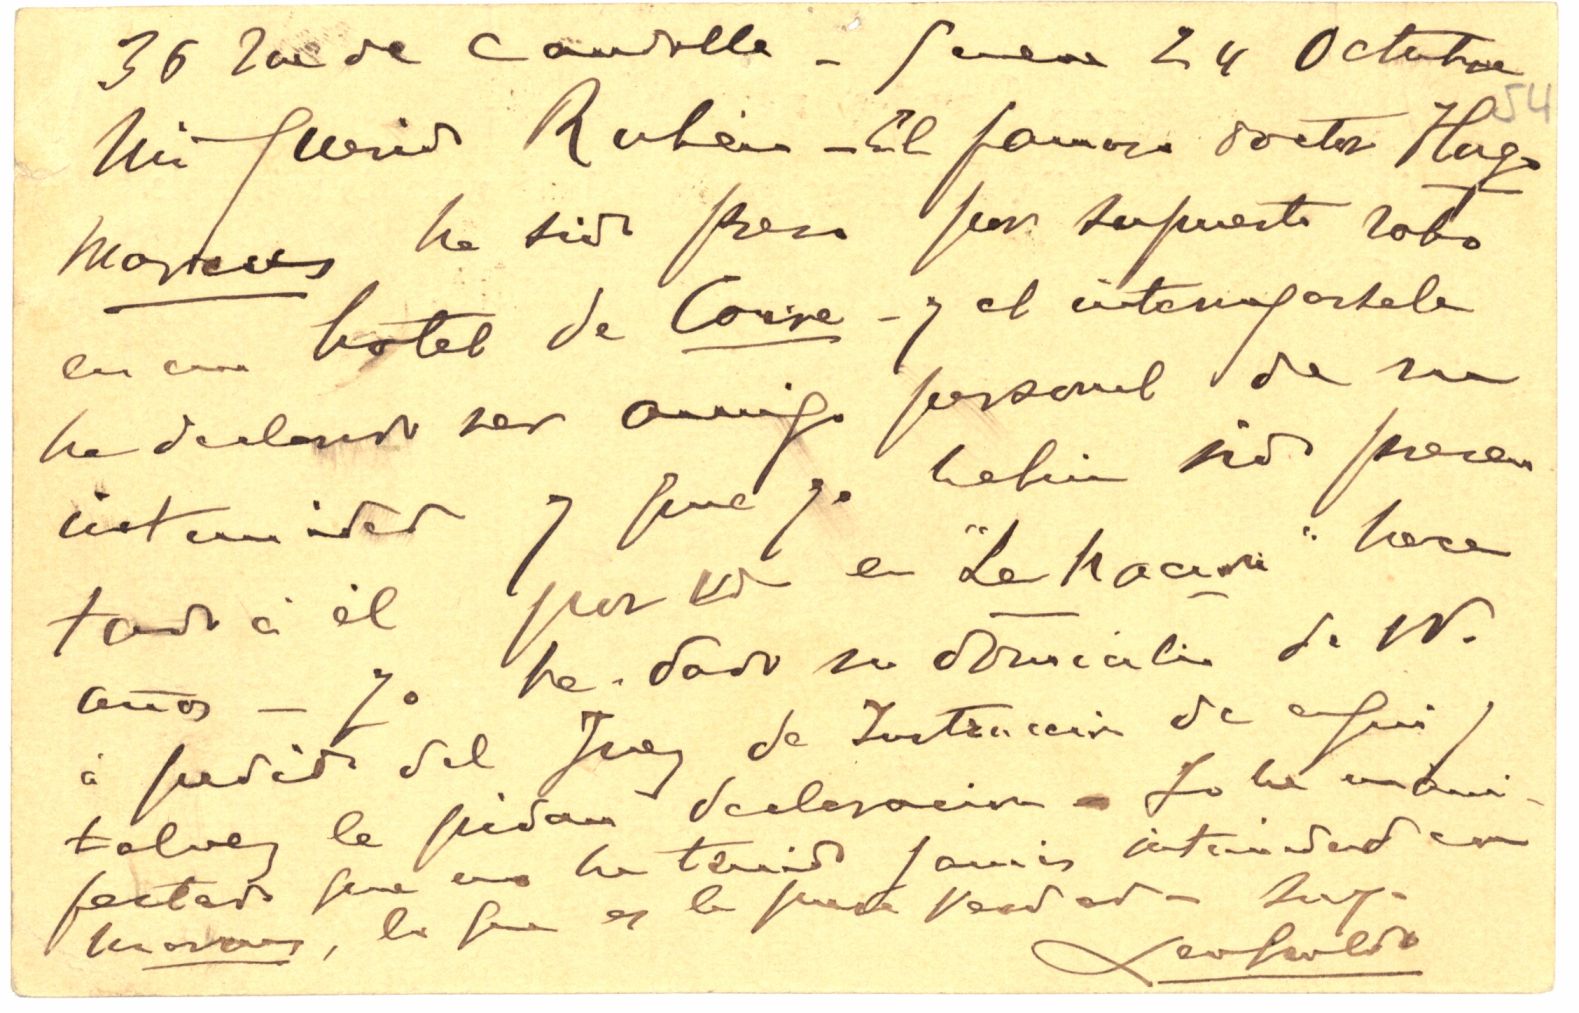 36 Rue de Candolle - Geneve 24 Octubre
54
Mi querido Rubén - El famoso doctor Hugo
Marcus ha sido preso por supuesto robo
en un hotel de - y al interrogársele
ha declarado ser amigo personal de su
intimidad y que yo habia sido presen
tado á él por Vd en "La Nacion" hace
años - Yo he dado su domicilio de Vd.
á pedido del Juez de Instruccion de aqui,
talvez le pidan declaracion - Yo he mani-
festado que no ha tenido jamás intimidad con
Marcus, lo que es la pura verdad - Suyo
Leopoldo